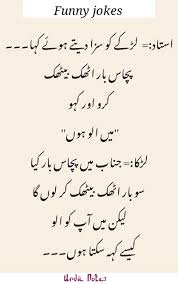 Funny jokes
استاد:= لڑکے کو سزا دیتے ہوئے کہا۔۔۔
پچاس بار اٹھک بیٹھک
کرو اور کہو
"میں الو ہوں"
لڑکا:= جناب میں پچاس بار کیا
سو بار اٹھک بیٹھک کر لوں گا
لیکن میں آپ کو الو
کیسے کہہ سکتا ہوں۔۔۔
Urdu Notes